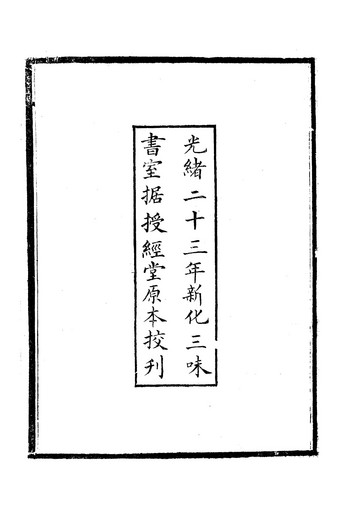 光緒二十三年新化三味
書室据授經堂原本挍刋